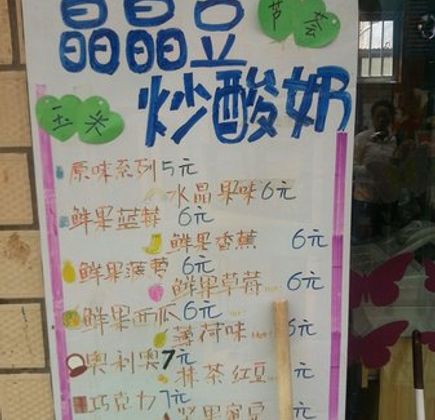 晶晶豆
芦荟
玉米
炒酸奶
原味系列5元
水晶果味6元
鲜果蓝莓 6元
鲜果香蕉 6元
鲜果菠萝 6元
鲜果草莓 6元
鲜果西瓜 6元
薄荷味 6元
奥利奥 7元
抹茶红豆 元
巧克力 7元
坚果蜜豆 元